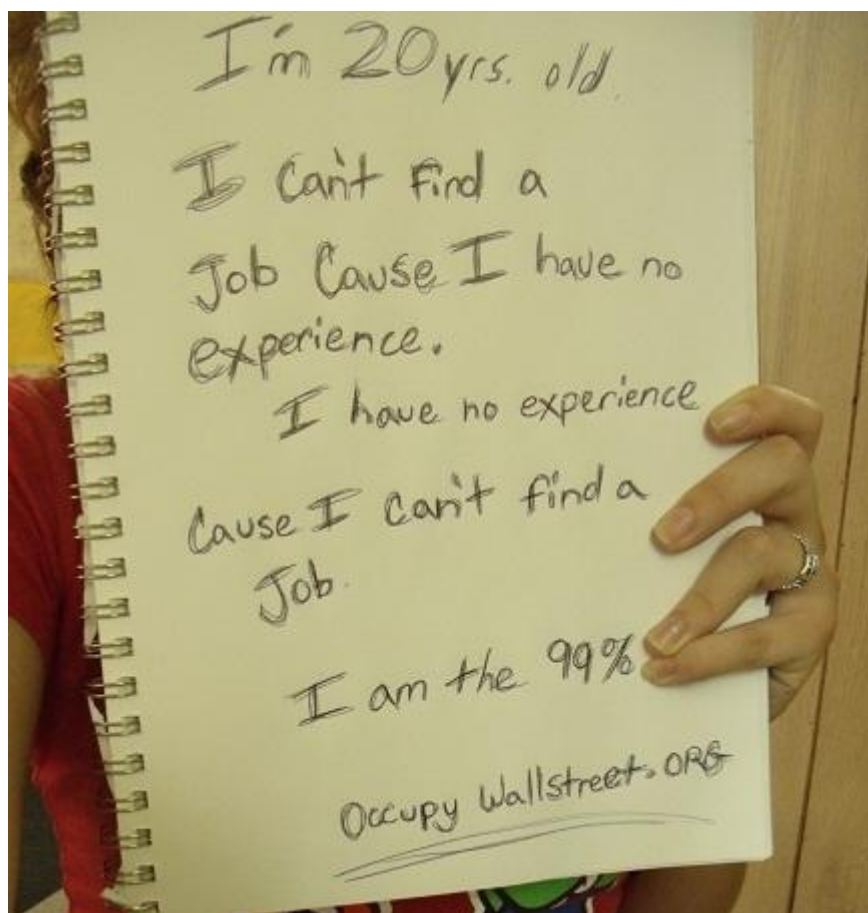 I'm 20 yrs. old.
I can't find a
Job Cause I have no
experience.
I have no experience
Cause I can't find a
Job.
I am the 99%
Occupy Wallstreet.ORG